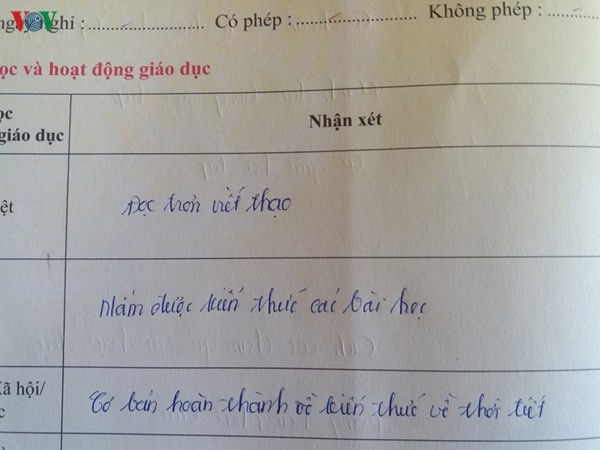 VOV
nghỉ : Có phép : Không phép :
ọc và hoạt động giáo dục
ọc
giáo dục
Nhận xét
ệt
Đọc trơn viết thạo
Nắm được kiến thức các bài học
ã hội/
c
Cơ bản hoàn thành về kiến thức về thời tiết